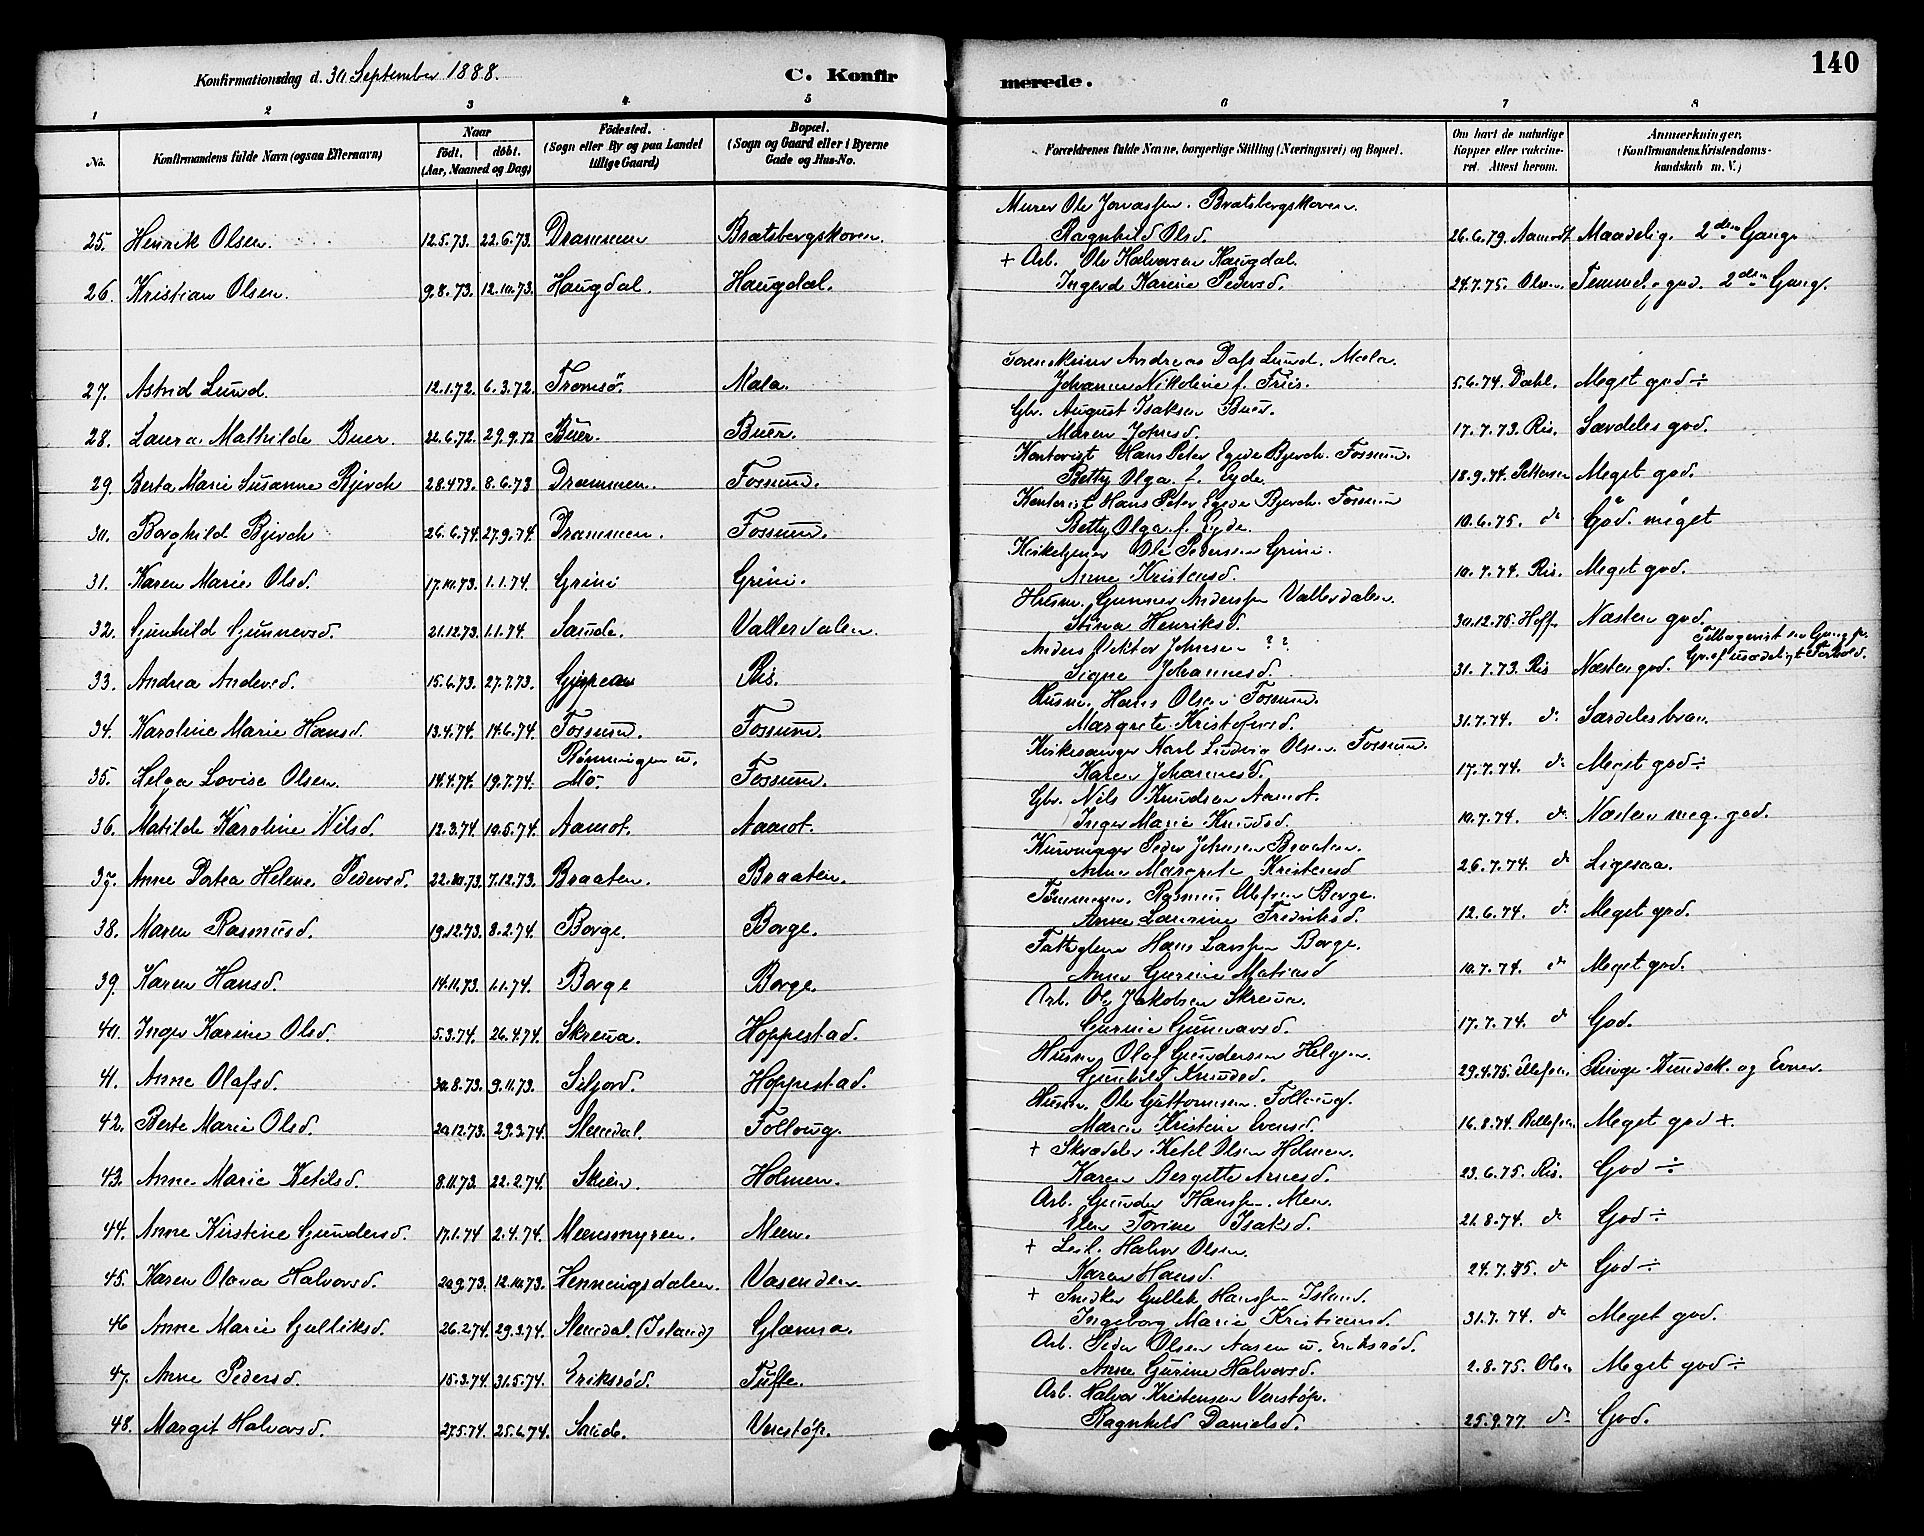 Konfirmationsdag d. 30 September 1888.
C. Konfirmerede.
140
1 2 3 4 5 6 7 8
No. Konfirmandens fulde Navn (ogsaa Efternavn) Naar født. døbt. (Aar, Maaned og Dag) Födested. (Sogn eller By og paa Landet tillige Gaard) Bopæl. (Sogn og Gaard eller i Byerne Gade og Hus-No. Forældrenes fulde Navne, borgerlige Stilling (Næringsvei) og Bopæl. Om havt de naturlige Kopper eller vakcineret. Attest herom. Anmærkninger, (Konfirmandens Kristendomskundskab m. V.)
Murer Ole Jonassen. Bratsbergskoven.
25. Henrik Olsen. 12.5.73. 22.6.73. Drammen Bratsbergskoven. Ragnhild Olsd. 26.6.79. Aamodt Maadelig. 2den Gang.
+ Arb. Ole Halvorsen Haugdal.
26. Kristian Olsen. 9.8.73. 12.10.73. Haugdal. Haugdal. Ingerd Karine Pedersd. 24.7.75. Olsen. Temmel. god. 2den Gang.
Sorenskriver Andreas Lund. Mæla.
27. Astrid Lund. 12.1.72. 6.3.72. Tromsö. Mæla. Johanne Nikoline f. Friis. 5.6.74. Dahl. Meget god ÷
Gbr. August Isaksen Buer.
28. Laura Mathilde Buer. 22.6.72. 29.9.72 Buer. Buer. Maren Johnsd. 17.7.73. Ris. Særdeles god.
Kontorist Hans Peter Egede Bjerch. Fossum.
29. Berta Marie Susanne Bjerch 28.4.73. 8.6.73 Drammen. Fossum. Betty Olga f. Eyde. 18.9.74. Pettersen Meget god.
Kontorist Hans Peter Egede Bjerch. Fossum
30. Borghild Bjerch 26.6.74. 27.9.74. Drammen. Fossum. Betty Olga f. Eyde. 10.6.75. do God. meget
Kirketjener Ole Pedersen Grini.
31. Karen Marie Olsd. 17.10.73. 1.1.74. Grini Grini. Anne Kristensd. 10.7.74. Ris. Meget god.
Husm. Gunner Andersen Vallerdalen.
32. Gunhild Gunnersd. 21.12.73. 1.1.74. Saude. Vallerdalen. Stina Henriksd. 30.12.75. Hoff. Næsten god.
Anders Viktor Johnsen ??
33. Andrea Andersd. 15.6.73. 27.7.73. Gjerpen Ris. Signe Johannesd. 31.7.73. Ris Næsten god. Tilbagevist en Gang pr. Gr. af usædeligt Forhold.
Husm. Hans Olsen Fossum.
34. Karoline Marie Hansd. 13.4.74. 14.6.74. Fossum. Fossum. Margrete Kristofersd. 31.7.74. do Særdeles bra.
Kirkesanger Karl Ludvig Olsen. Fossum.
35. Helga Lovise Olsen. 14.4.74. 19.7.74. Rønningen u. Mo. Fossum. Karen Johannesd. 17.7.74. do Meget god ÷
Gbr. Nils Knudsen Aamot.
36. Matilde Karoline Nilsd. 12.3.74. 10.5.74. Aamot. Aamot. Inger Marie Knudsd. 10.7.74. do Næsten meg. god.
Peder Johnsen Braaten.
37. Anne Dortea Helene Pedersd. 22.10.73. 7.12.73. Braaten. Braaten. Anne Margrete Kristensd 26.7.74. do Ligesaa.
Tømmerm. Rasmus Borge.
38. Maren Rasmusd. 19.12.73. 8.2.74. Borge. Borge. Anne Laurine Fredriksd. 12.6.74. do Meget god.
Hans Larsen Borge.
39. Karen Hansd. 14.11.73. 1.1.74. Borge Borge. Anne Gurine Matiesd 10.7.74. do Meget god.
Arb. Ole Jakobsen Skreua.
40. Inger Karine Olsd. 5.3.74. 26.4.74. Skreua. Hoppestad. Gurine Gunnarsd. 17.7.74. do God.
Husm. Olaf Gundersen Helgen.
41. Anne Olafsd. 30.8.73. 9.11.73. Siljord. Hoppestad. Gunhild Knudsd. 29.4.75. Ellefsen. Ringe Kundsk. og Evner.
Husm. Ole Guttormsen. Follaug.
42. Berte Marie Olsd. 20.12.73. 29.3.74. Slemdal. Follaug. Maren Kristine Evensd. 16.8.74. Meget god +.
+ Skrædder Ketil Olsen Holmen.
43. Anne Marie Ketilsd. 8.11.73. 22.2.74. Skien. Holmen. Karen Bergitte Arnesd. 23.6.75. Ris. God ÷
Arb. Gunder Hansen. Meen.
44. Anne Kirstine Gundersd. 17.1.74 2.4.74. Meensmyren. Meen. Elen Torine Isaksd. 21.8.74. do God ÷
+ Leil. Halvor Olsen.
45. Karen Olava Halvorsd. 20.9.73. 12.10.73. Henningsdalen. Vasenden. Karen Hansd. 24.7.75. do God ÷
+ Snedker Gullik Hansen Island.
46 Anne Marie Gulliksd. 26.2.74. 29.3.74. Slemdal (Island) Glænna. Ingeborg Marie Kristiansd. 31.7.74. do Meget god.
Arb. Peder Olsen Aasen u. Eriksrød.
47. Anne Pedersd. 15.3.74. 31.5.74. Eriksrød. Tufte. Anne Gurine Halvorsd. 2.8.75. Olsen Meget god ÷
Arb. Halvor Kristensen Venstøp.
48. Margit Halvorsd. 27.5.74. 25.6.74. Saude. Venstøp. Ragnhild Danielsd. 25.9.77 do God.